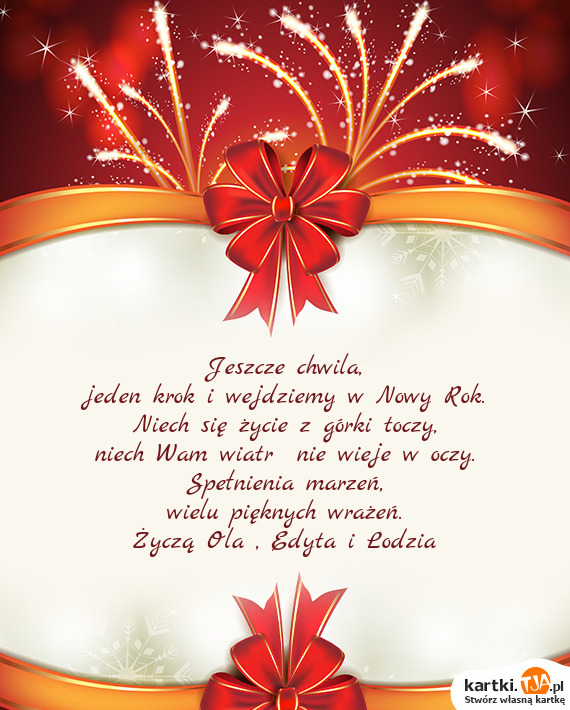 Jeszcze chwila,
jeden krok i wejdziemy w Nowy Rok.
Niech się życie z górki toczy,
niech Wam wiatr  nie wieje w oczy.
Spełnienia marzeń,
wielu pięknych wrażeń.
Życzą Ola , Edyta i Łodzia
kartki.TJA.pl
Stwórz własną kartkę